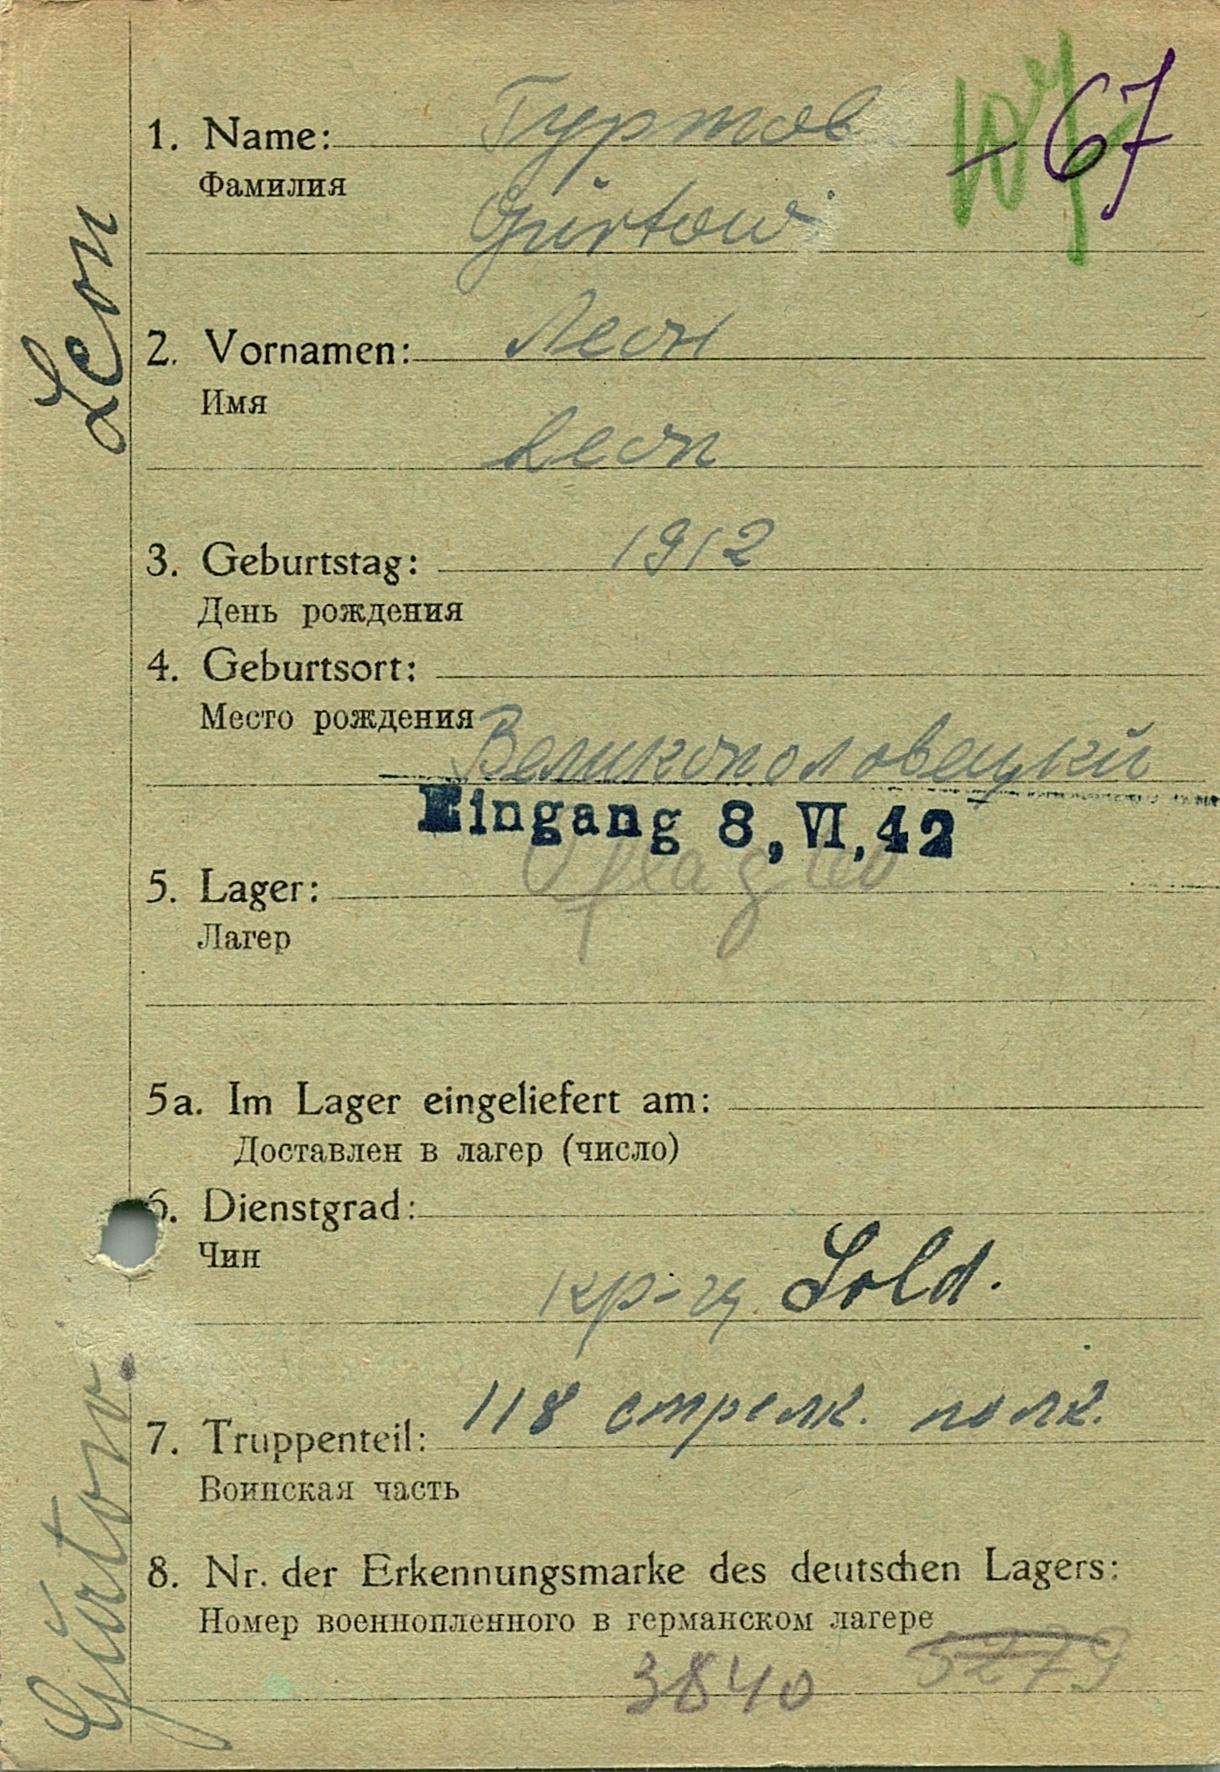 67
1. Name: Гуртов
Фамилия
Gürtow
2. Vornamen: Леон
Имя
Leon
3. Geburtstag: 1912
День рождения
4. Geburtsort:
Место рождения
Великополовецкий
Eingang 8, VI, 42
5. Lager: Oflag
Лагер
5a. Im Lager eingeliefert am:
Доставлен в лагер (число)
6. Dienstgrad:
Чин
кр-ец Sold.
7. Truppenteil: 118 стрелк. полк.
Воинская часть
8. Nr. der Erkennungsmarke des deutschen Lagers:
Номер военнопленного в германском лагере
3840 5279
Gürtow Leon